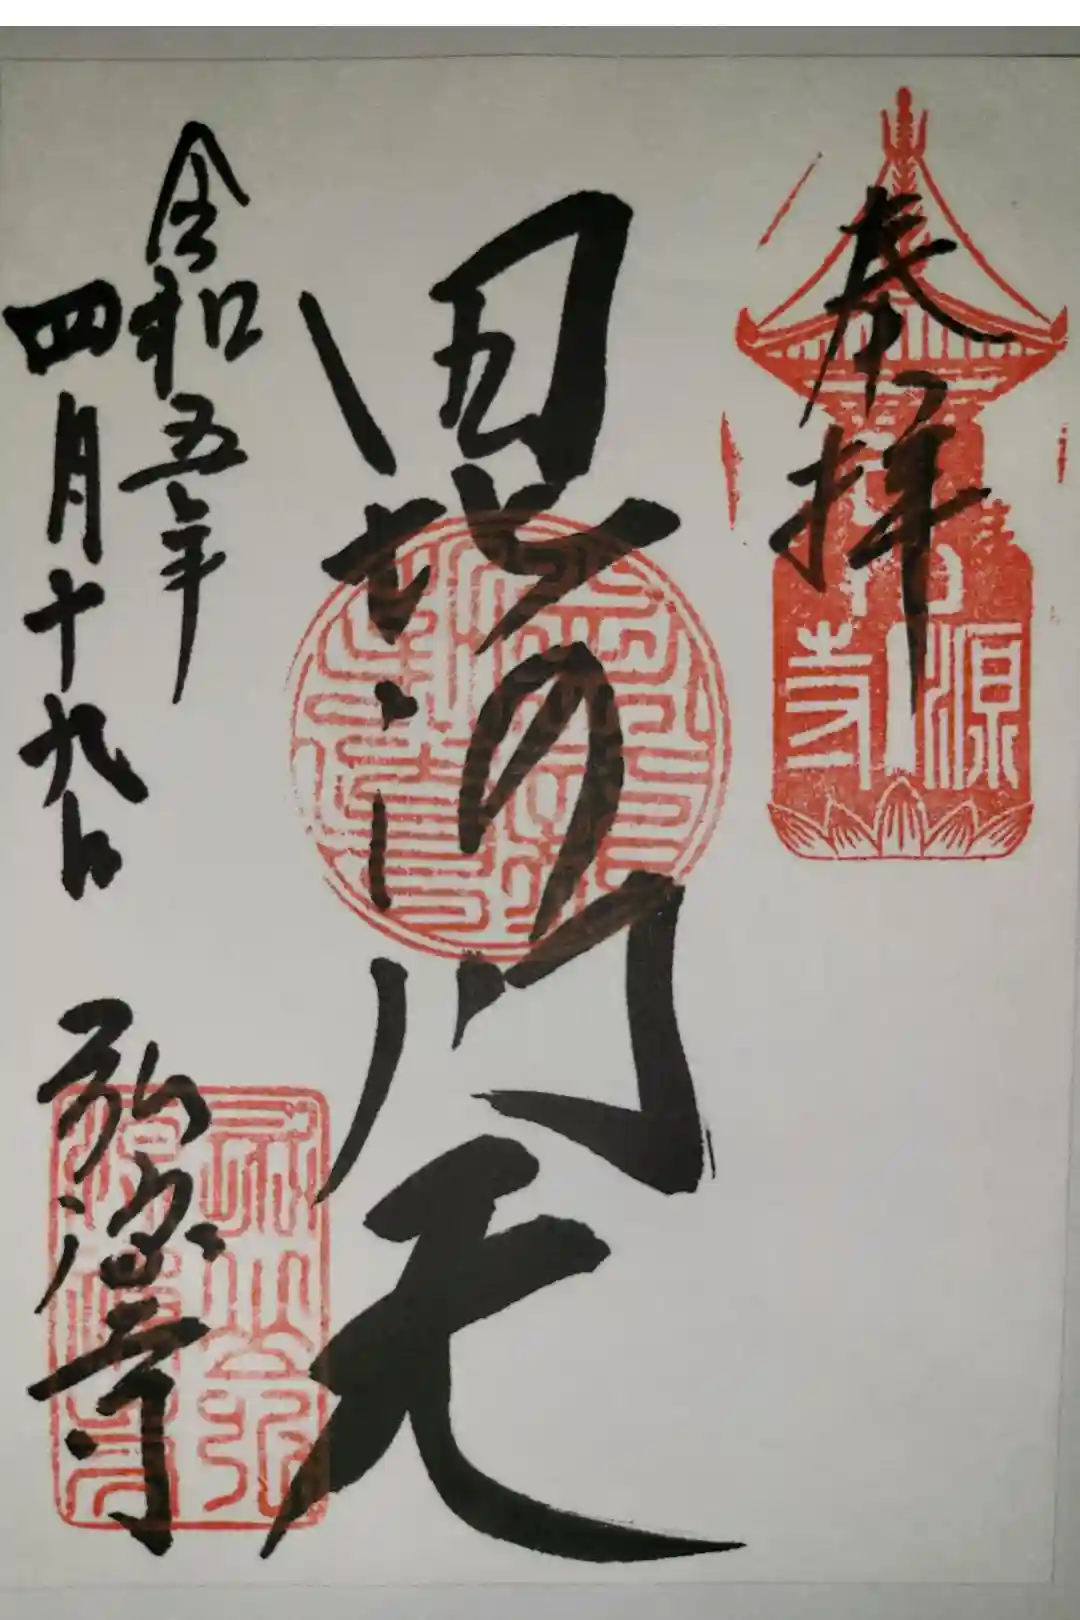 奉拝
毘沙門天
令和五年
四月十九日
弘源寺
源
寺